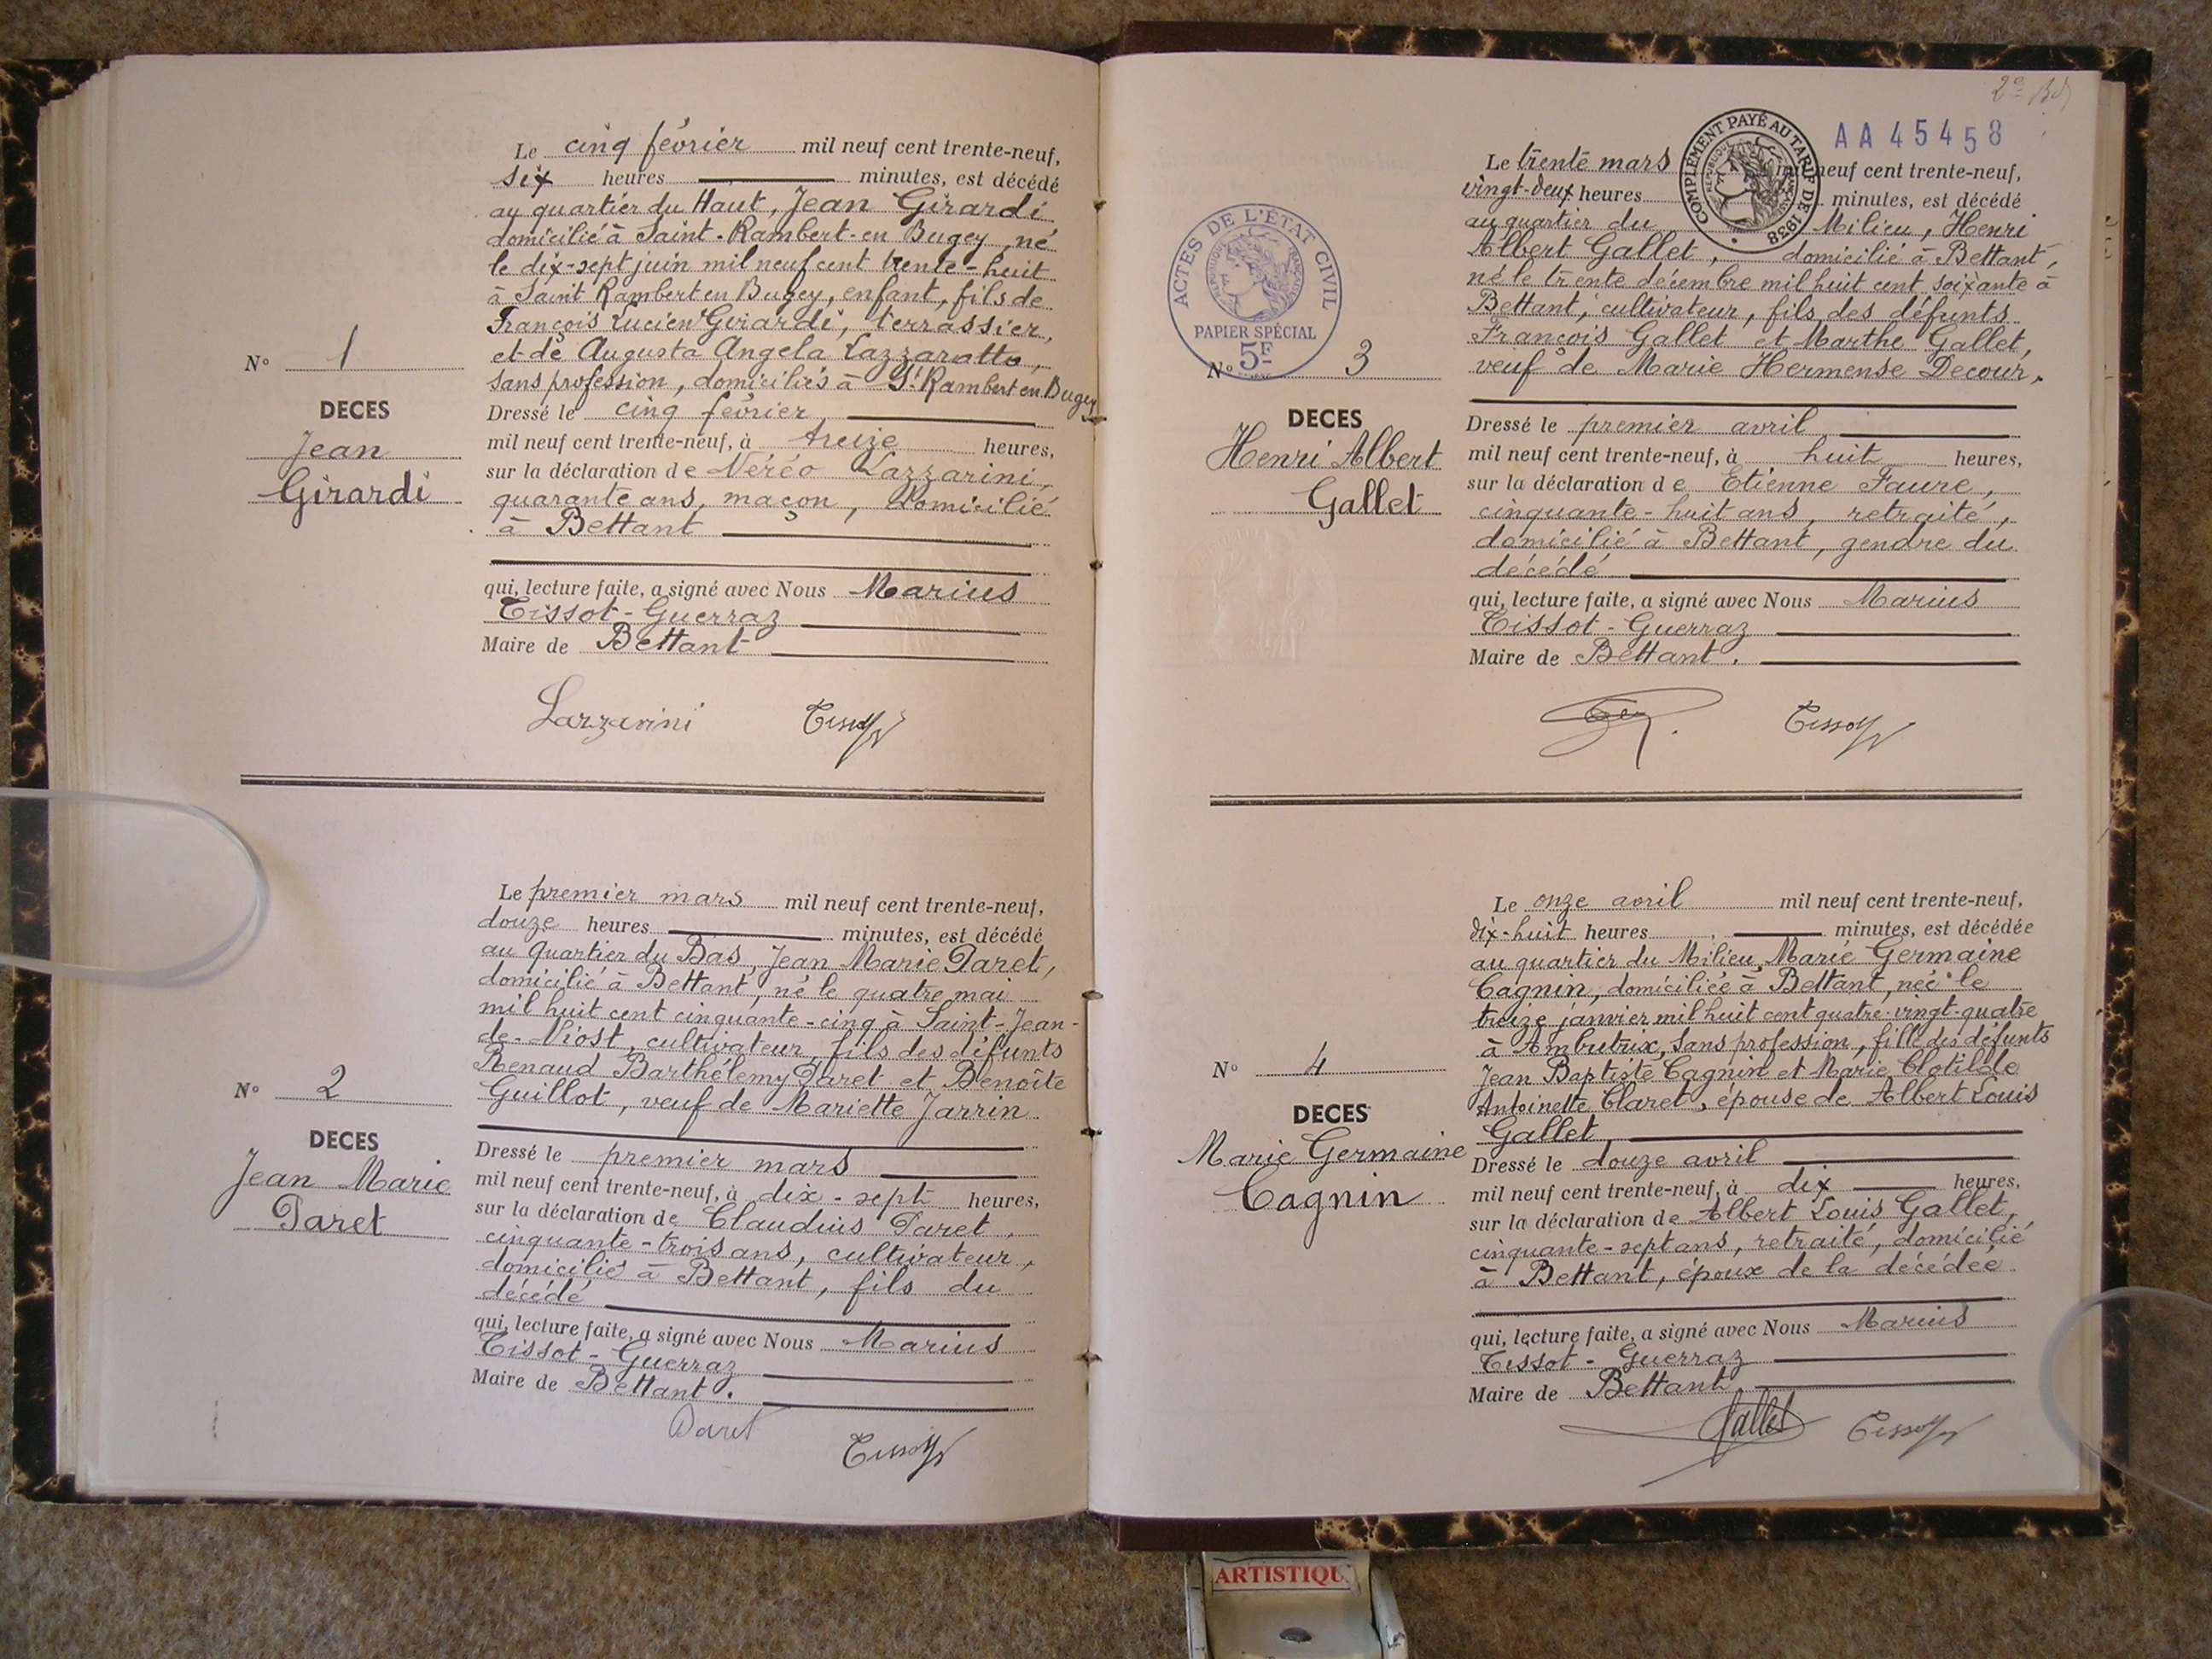 Le cinq février mil neuf cent trente-neuf,
six heures minutes, est décédé
au quartier du Haut, Jean Girardi
domicilié à Saint-Rambert-en Bugey, né
le dix-sept juin mil neuf cent trente-huit
à Saint Rambert en Bugey, enfant, fils de
François Lucien Girardi, terrassier,
et de Augusta Angela Lazzaratto,
sans profession, domiciliés à St Rambert en Bugey
N° 1
DECES
Jean
Girardi
Dressé le cinq février
mil neuf cent trente-neuf, à treize heures,
sur la déclaration de Néréo Lazzarini,
quarante ans, maçon, domicilié
à Bettant
qui, lecture faite, a signé avec Nous Marius
Tissot-Guerraz
Maire de Bettant
Lazzarini Tissot
Le premier mars mil neuf cent trente-neuf,
douze heures minutes, est décédé
au quartier du Bas, Jean Marie Paret,
domicilié à Bettant, né le quatre mai
mil huit cent cinquante-cinq à Saint-Jean-
de-Niost, cultivateur, fils des défunts
Renaud Barthélemy Paret et Benoîte
Guillot, veuf de Mariette Jarrin
N° 2
DECES
Jean Marie
Paret
Dressé le premier mars
mil neuf cent trente-neuf, à dix-sept heures,
sur la déclaration de Claudius Paret,
cinquante-trois ans, cultivateur,
domicilié à Bettant, fils du
décédé
qui, lecture faite, a signé avec Nous Marius
Tissot-Guerraz
Maire de Bettant.
Paret Tissot
2e
AA 45458
COMPLÉMENT PAYÉ AU TARIF DE 1938
Le trente mars neuf cent trente-neuf,
vingt-deux heures minutes, est décédé
au quartier du Milieu, Henri
Albert Gallet, domicilié à Bettant,
né le trente décembre mil huit cent soixante à
Bettant, cultivateur, fils des défunts
François Gallet et Marthe Gallet,
veuf de Marie Hermense Decour.
ACTES DE L'ÉTAT CIVIL
PAPIER SPÉCIAL
5F
N° 3
DECES
Henri Albert
Gallet
Dressé le premier avril
mil neuf cent trente-neuf, à huit heures,
sur la déclaration de Etienne Faure,
cinquante-huit ans, retraité,
domicilié à Bettant, gendre du
décédé
qui, lecture faite, a signé avec Nous Marius
Tissot-Guerraz
Maire de Bettant.
Tissot
Le onze avril mil neuf cent trente-neuf,
dix-huit heures minutes, est décédée
au quartier du Milieu, Marie Germaine
Cagnin, domiciliée à Bettant, née le
treize janvier mil huit cent quatre-vingt-quatre
à Ambutrix, sans profession, fille des défunts
Jean Baptiste Cagnin et Marie Clotilde
Antoinette Claret, épouse de Albert Louis
Gallet
N° 4
DECES
Marie Germaine
Cagnin
Dressé le douze avril
mil neuf cent trente-neuf, à dix heures,
sur la déclaration de Albert Louis Gallet,
cinquante-sept ans, retraité, domicilié
à Bettant, époux de la décédée
qui, lecture faite, a signé avec Nous Marius
Tissot-Guerraz
Maire de Bettant
Gallet Tissot
ARTISTIQU